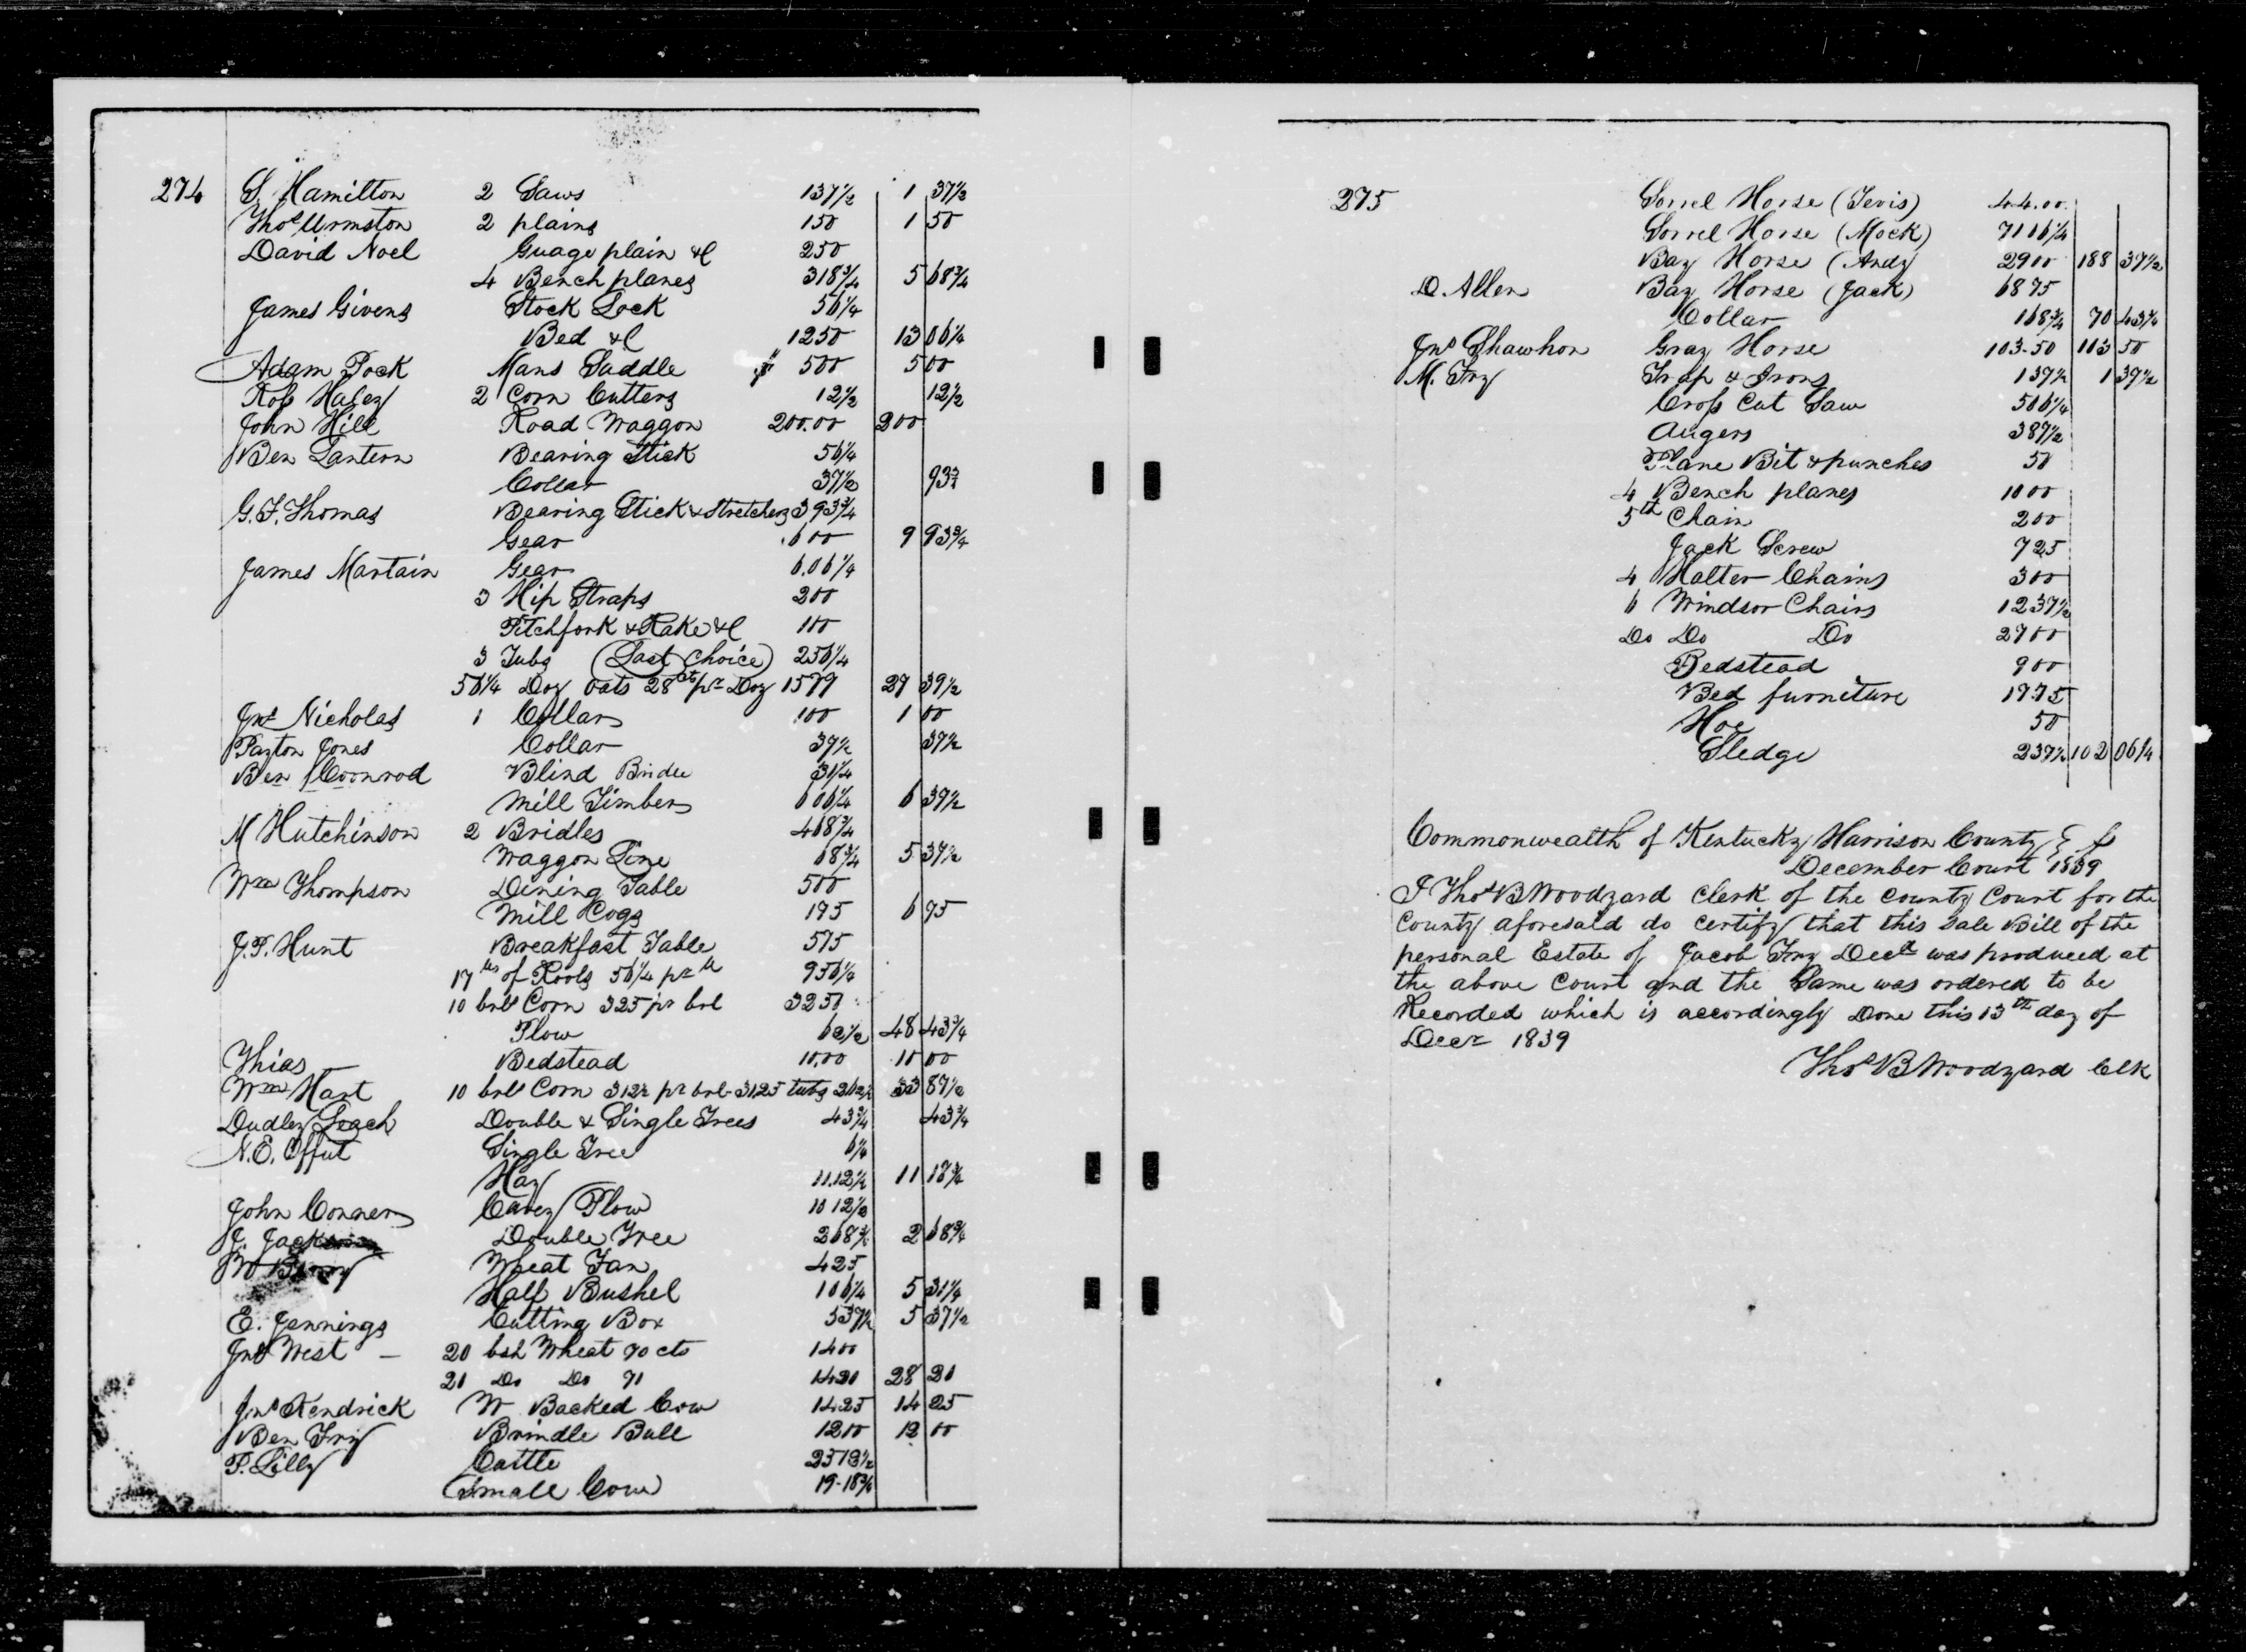 274 S. Hamilton 2 Saws 137½ 1 37½
Thos Urmston 2 plains 150 1 50
David Noel Guage plain &C 250
4 Bench planes 318¾ 5 68¾
James Givens Stock Lock 56¼
Bed &C 1250 13 06¼
Adam Pock Mans Saddle 500 5 00
Ross Haley 2 Corn Cutters 12½ 12½
John Hill Road Waggon 200.00 200
Ben Lantern Bearing Stick 56¼
Collar 37½ 93¾
G. F. Thomas Bearing Stick & Stretchers 393¾
Gear 600 9 93¾
James Martain Gear 6.06¼
3 Hip Straps 200
Pitchfork & Rake &C 100
3 Tubs (Last Choice) 256¼
56¼ Doz Oats 28cts pr Doz 1577 27 39½
Jno Nicholas 1 Collar 100 1 00
Payton Jones Collar 37½ 37½
Ben Coonrod Blind Bridle 31¼
Mill Timbers 606¼ 6 37½
M Hutchinson 2 Bridles 468¾
Waggon Line 68¾ 5 37½
Wm Thompson Dining Table 500
Mill Cogs 195 6 95
J. P. Hunt Breakfast Table 575
17 of Rools 56¼ pr 956¼
10 brls Corn 325 pr brl 3250
Plow 62½ 48 43¾
Thias Bedstead 10.00 10 00
Wm Hart 10 brls Corn 312½ pr brl 3125 tubs 262½ 33 87½
Dudley Leach Double & Single Trees 43¾ 43¾
N. E. Offut Single Tree 6¼
Hay 11.12½ 11 18¾
John Conner Carey Plow 10 12½
J. Jackson Double Tree 268¾ 2 68¾
Wheat Fan 425
Half Bushel 106¼ 5 31¼
E. Jennings Cutting Box 537½ 5 37½
Jno West — 20 bsh Wheat 70 cts 1400
20 Do Do 71 1420 28 20
Jno Kendrick W Backed Cow 1425 14 25
Ben Fry Brindle Bull 1200 12 00
P. Lilly Cattle
Small Cow 19-18¾
275 Sorrel Horse (Tevis) 44.00
Sorrel Horse (Mock) 7106¼
Bay Horse (Andy 2900 188 37½
D. Allen Bay Horse (Jack) 6875
Collar 168¾ 70 43¾
Jno Shawhon Gray Horse 103-50 103 50
M. Fry Trap & Irons 137½ 1 37½
Cross Cut Saw 506¼
Augers 387½
Plane Bit & punches 50
4 Bench planes 1000
5th Chain 200
Jack Screw 725
4 Halter Chains 300
6 Windsor Chairs 1237½
Do Do Do 2700
Bedstead 900
Bed furniture 1775
Hoe 50
Sledge 237½ 102 06¼
Commonwealth of Kentucky Harrison County
December Court 1839
I Thos B Woodyard Clerk of the County Court for the
County aforesaid do certify that this Sale Bill of the
personal Estate of Jacob Fry Decd was produced at
the above Court and the Same was ordered to be
Recorded which is accordingly Done this 13th day of
Decr 1839
Thos B Woodyard Clk